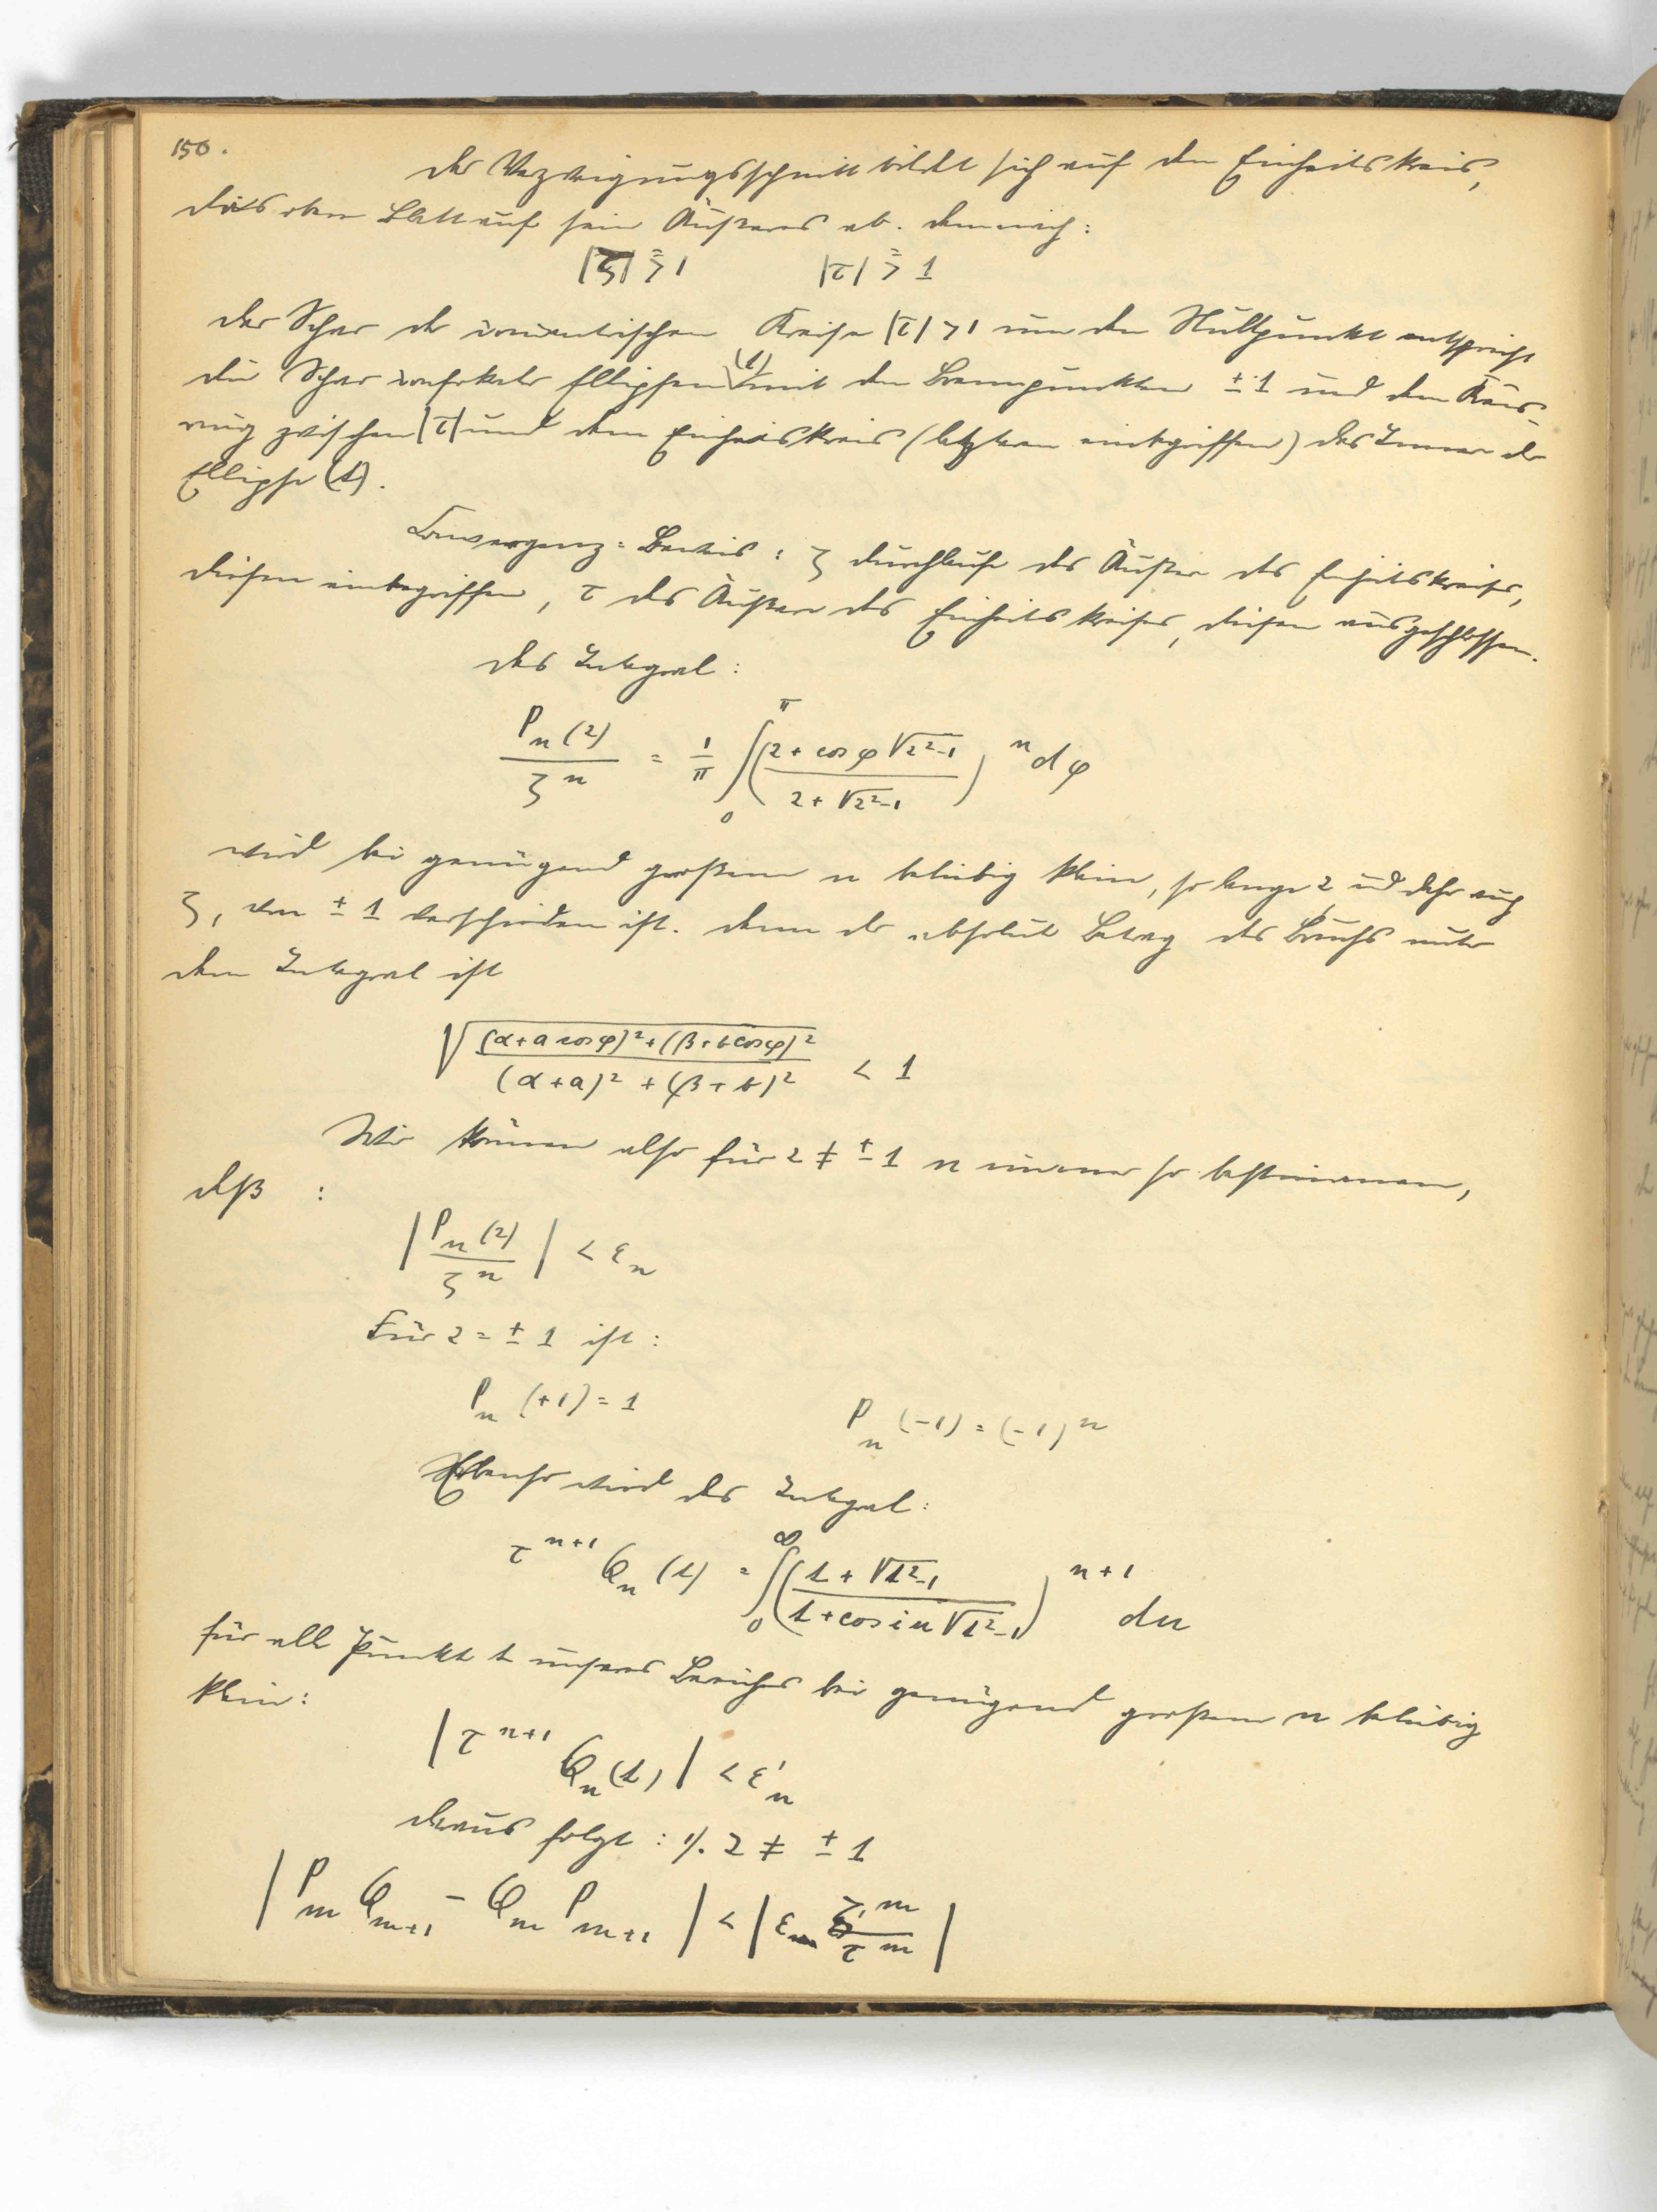 150.
Der Verzweigungsschnitt bildet sich auf den Einheitskreis,
das obere Blatt auf sein Äußeres ab. Demnach:
|ζ| ≧ 1 |τ| ≧ 1
Der Schar der konzentrischen Kreise |τ| > 1 um den Nullpunkt entspricht
die Schar konfokaler Ellipsen (t) mit den Brennpunkten ± 1 und dem Kreis-
ring zwischen |τ| und dem Einheitskreis (letzteren einbegriffen) das Innere der
Ellipse (t).
Convergenz=Beweis: ζ durchlaufe das Äußere des Einheitskreises,
diesen einbegriffen, τ das Äußere des Einheitskreises, diesen ausgeschlossen.
Das Integral:
P_n(z)/ζ^n = 1/π ∫_0^π ((z + cos φ √(z²-1))/(z + √(z²-1)))^n dφ
wird bei genügend großem n beliebig klein, so lange z und daher auch
ζ, von ± 1 verschieden ist. Denn der absolute Betrag des Bruchs unter
dem Integral ist
√(((α + a cos φ)² + (β + b cos φ)²)/((α + a)² + (β + b)²)) < 1
Wir können also für z ≠ ± 1 n immer so bestimmen,
daß :
|P_n(z)/ζ^n| < ε_n
Für z = ± 1 ist:
P_n(+1) = 1 P_n(-1) = (-1)^n
Ebenso wird das Integral:
τ^{n+1} Q_n(t) = ∫_0^∞ ((t + √(t²-1))/(t + cos iu √(t²-1)))^{n+1} du
für alle Punkte t unseres Bereiches bei genügend großem n beliebig
klein:
|τ^{n+1} Q_n(t)| < ε'_n
Daraus folgt: 1). z ≠ ± 1
|P_m Q_{m+1} - Q_m P_{m+1}| < |ε_m ζ^m/τ^m|